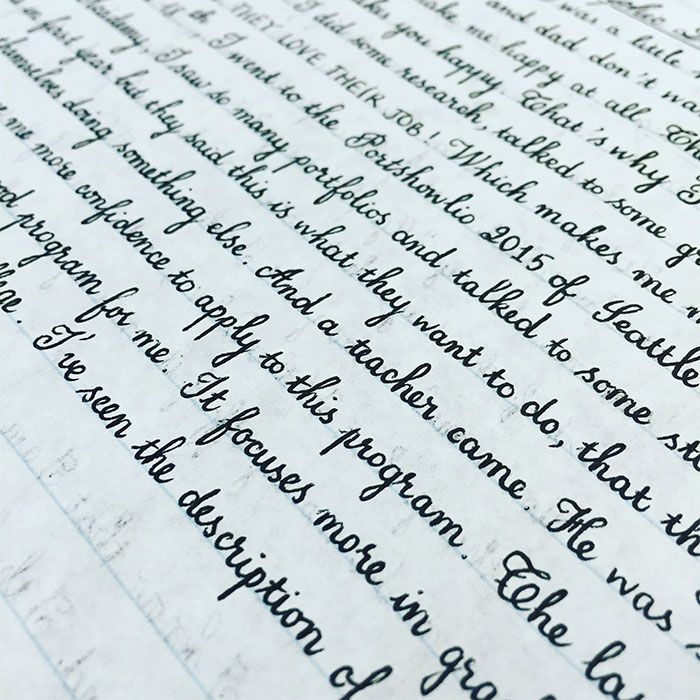 was a little
and dad don't
me happy at all. Th
you happy. That's why I
I did some research, talked to some gr
THEY LOVE THEIR JOB! Which makes me
th I went to the Portshowlio 2015 of Seattle
I saw so many portfolios and talked to some st
in first year but they said this is what they want to do, that th
themselves doing something else. And a teacher came. He was
me more confidence to apply to this program. The la
program for me. It focuses more in gra
I've seen the description of